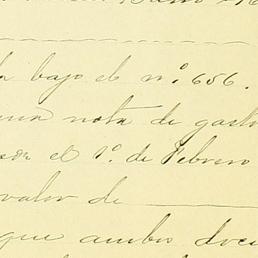 bajo el nº. 656.
una nota de gast
el 1º. de Febrero
valor de
que ambos docu